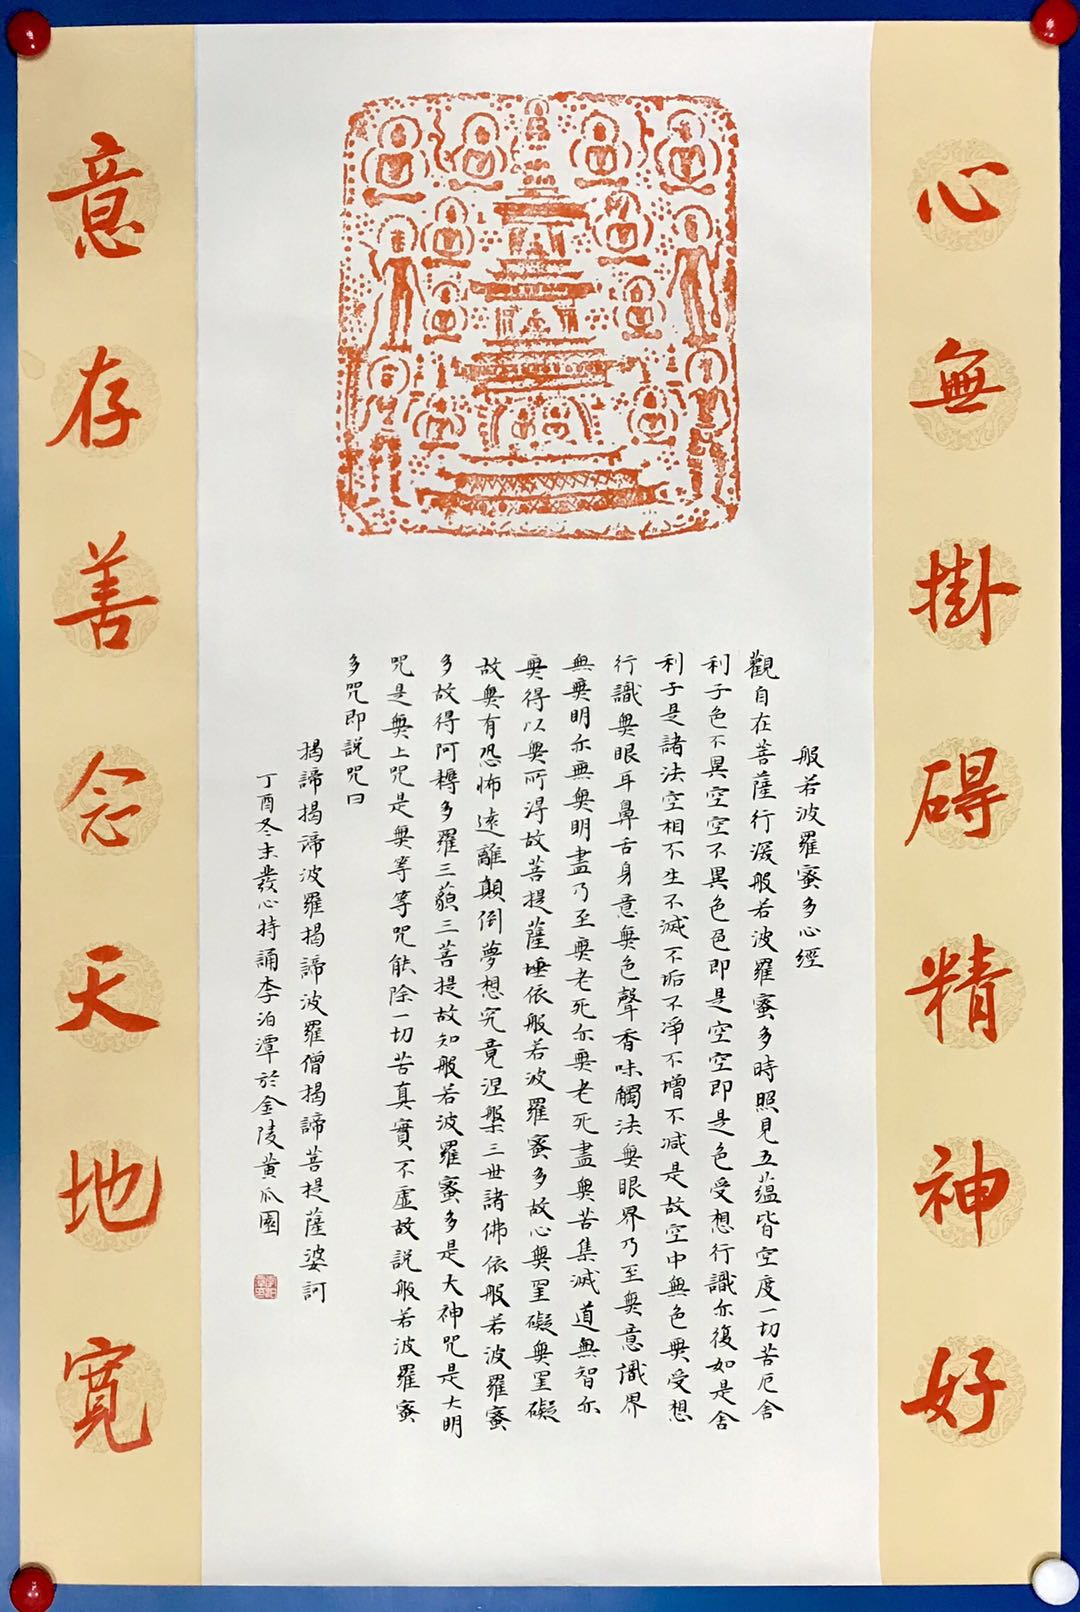 心無掛碍精神好
般若波羅蜜多心經
觀自在菩薩行深般若波羅蜜多時照見五蘊皆空度一切苦厄舍
利子色不異空空不異色色即是空空即是色受想行識亦復如是舍
利子是諸法空相不生不滅不垢不淨不增不减是故空中無色無受想
行識無眼耳鼻舌身意無色聲香味觸法無眼界乃至無意識界
無無明亦無無明盡乃至無老死亦無老死盡無苦集滅道無智亦
無得以無所得故菩提薩埵依般若波羅蜜多故心無罣礙無罣礙
故無有恐怖遠離顛倒夢想究竟涅槃三世諸佛依般若波羅蜜
多故得阿耨多羅三藐三菩提故知般若波羅蜜多是大神咒是大明
咒是無上咒是無等等咒能除一切苦真實不虛故説般若波羅蜜
多咒即説咒曰
揭諦揭諦波羅揭諦波羅僧揭諦菩提薩婆訶
丁酉冬末發心持誦李泊潭於金陵黄瓜園
意存善念天地寬